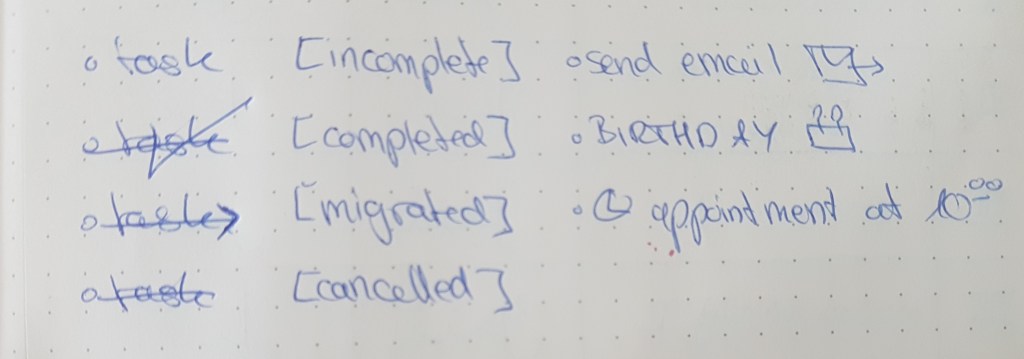 task [incomplete] send email
task [completed] BIRTHDAY
task [migrated] appointment at 10⁰⁰
task [cancelled]